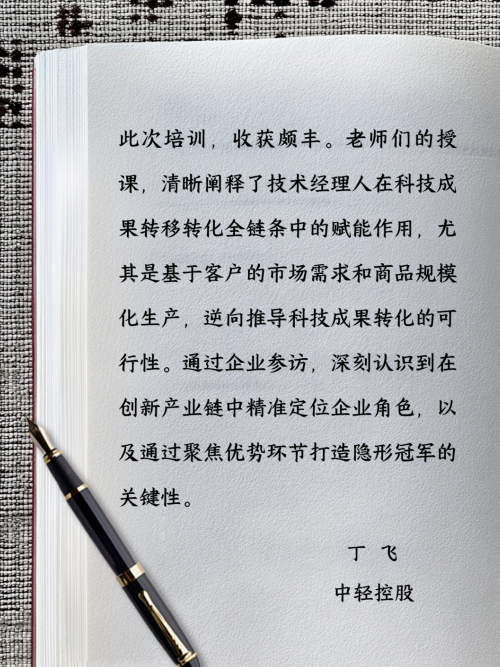 此次培训，收获颇丰。老师们的授
课，清晰阐释了技术经理人在科技成
果转移转化全链条中的赋能作用，尤
其是基于客户的市场需求和商品规模
化生产，逆向推导科技成果转化的可
行性。通过企业参访，深刻认识到在
创新产业链中精准定位企业角色，以
及通过聚焦优势环节打造隐形冠军的
关键性。
丁 飞
中轻控股